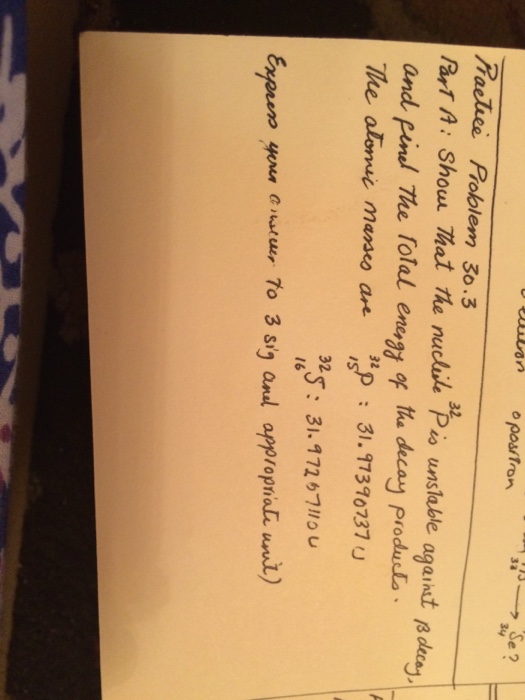 oposition
33
→ Se?
34
Practice Problem 30.3
Part A: Show That the nuclide ³²P is unstable against β decay,
and find The Total energy of the decay products.
The atomic masses are ³²₁₅P : 31.97390737 u
³²₁₆S : 31.97207110 u
Express your answer To 3 sig and appropriate unit)